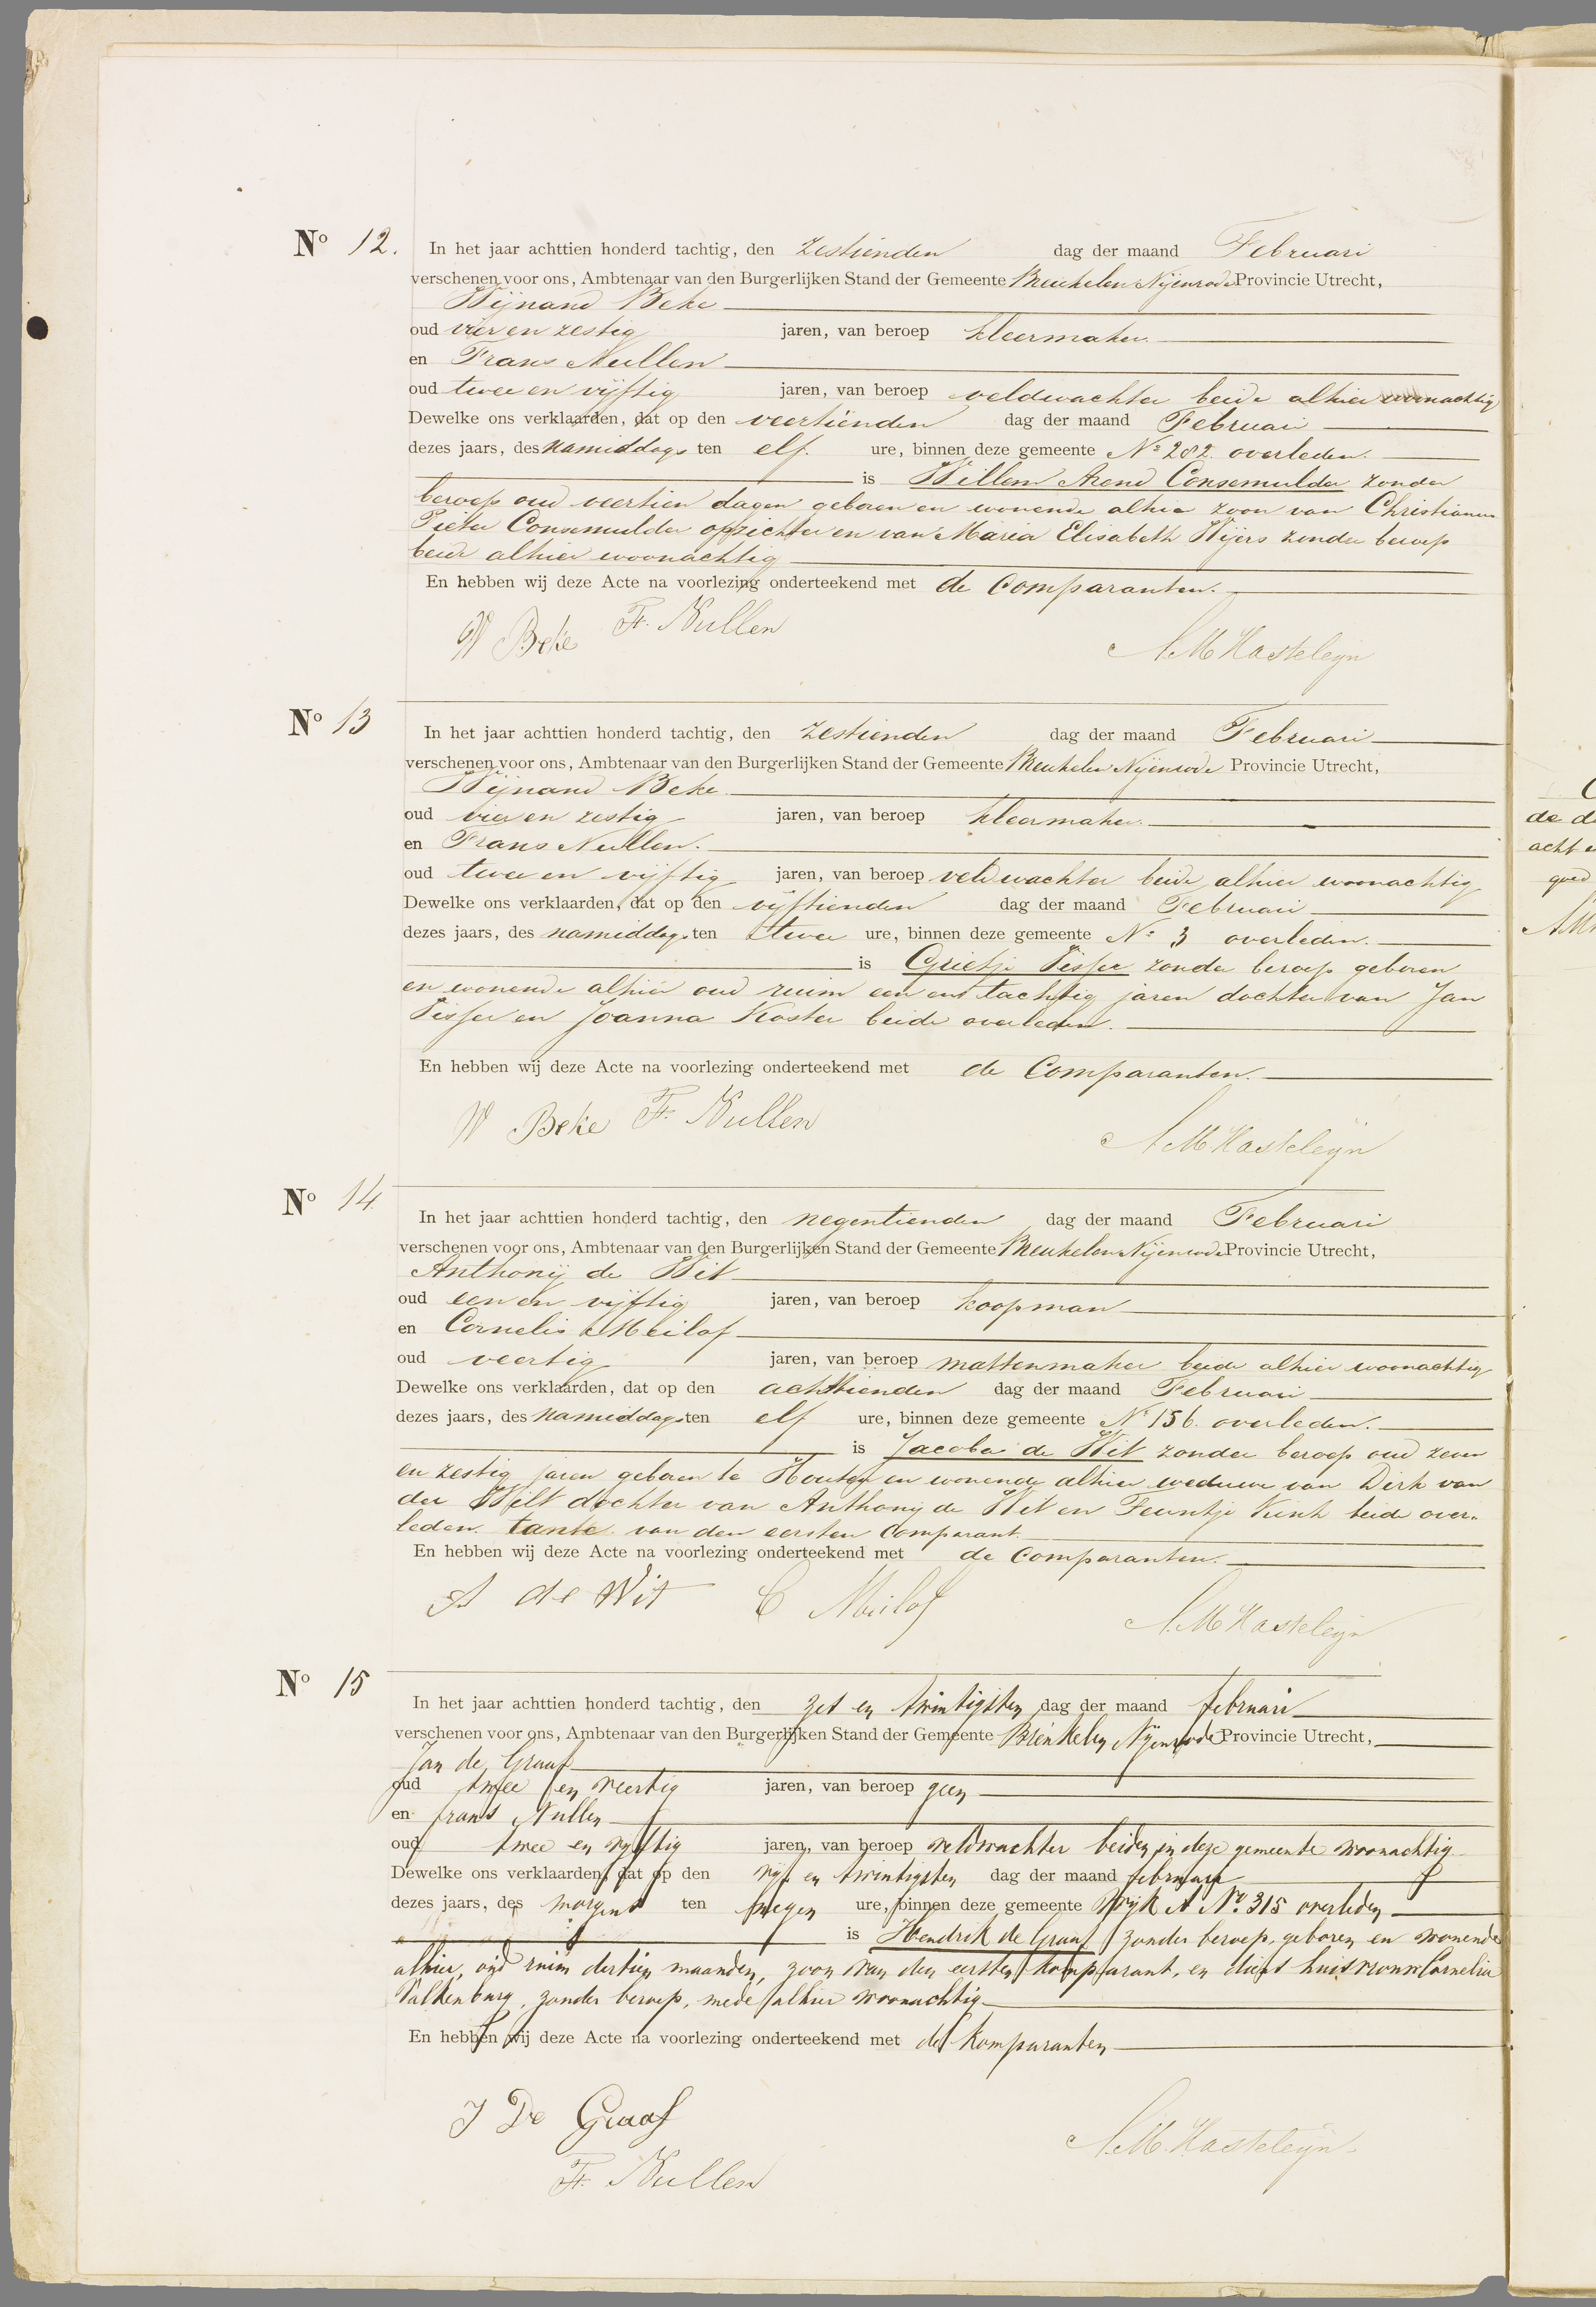 Nº 12. In het jaar achttien honderd tachtig, den zestienden dag der maand Februari
verschenen voor ons, Ambtenaar van den Burgerlijken Stand der Gemeente Breukelen Nijenrode Provincie Utrecht,
Wijnand Beke
oud vier en zestig jaren, van beroep kleermaker.
en Frans Nullen
oud twee en vijftig jaren, van beroep veldwachter beide alhier woonachtig
Dewelke ons verklaarden, dat op den veertienden dag der maand Februari
dezes jaars, des namiddags ten elf. ure, binnen deze gemeente Nº 282. overleden.
is Willem Arend Consemulder zonder
beroep oud veertien dagen geboren en wonende alhier zoon van Christianus
Pieter Consemulder opzichter en van Maria Elisabeth Wijers zonder beroep
beide alhier woonachtig
En hebben wij deze Acte na voorlezing onderteekend met de Comparanten.
W Beke F. Nullen A M Kasteleijn
Nº 13 In het jaar achttien honderd tachtig, den zestienden dag der maand Februari
verschenen voor ons, Ambtenaar van den Burgerlijken Stand der Gemeente Breukelen Nijenrode Provincie Utrecht,
Wijnand Beke
oud vier en zestig jaren, van beroep kleermaker.
en Frans Nullen.
oud twee en vijftig jaren, van beroep veldwachter beide alhier woonachtig
Dewelke ons verklaarden, dat op den vijftienden dag der maand Februari
dezes jaars, des namiddags ten twee ure, binnen deze gemeente Nº 3 overleden.
is Grietje Visser zonder beroep geboren
en wonende alhier oud ruim een en tachtig jaren dochter van Jan
Visser en Joanna Koster beide overleden.
En hebben wij deze Acte na voorlezing onderteekend met de Comparanten.
W Beke F. Nullen A M Kasteleijn
Nº 14 In het jaar achttien honderd tachtig, den negentienden dag der maand Februari
verschenen voor ons, Ambtenaar van den Burgerlijken Stand der Gemeente Breukelen Nijenrode Provincie Utrecht,
Anthonij de Wit
oud een en vijftig jaren, van beroep koopman
en Cornelis Meilof
oud veertig jaren, van beroep mattenmaker beide alhier woonachtig
Dewelke ons verklaarden, dat op den achttienden dag der maand Februari
dezes jaars, des namiddags ten elf ure, binnen deze gemeente Nº 156. overleden.
is Jacoba de Wit zonder beroep oud zeven
en zestig jaren geboren te Houten en wonende alhier weduwe van Dirk van
der Wilt dochter van Anthonij de Wit en Teuntje Kink beide over-
leden. tante van den eersten Comparant.
En hebben wij deze Acte na voorlezing onderteekend met de Comparanten.
A de Wit C Meilof A M Kasteleijn
Nº 15 In het jaar achttien honderd tachtig, den zes en twintigsten dag der maand februari
verschenen voor ons, Ambtenaar van den Burgerlijken Stand der Gemeente Breukelen Nijenrode Provincie Utrecht,
Jan de Graaf
oud twee en veertig jaren, van beroep geen
en frans Nullen
oud twee en vyftig jaren, van beroep veldwachter beiden in deze gemeente woonachtig
Dewelke ons verklaarden, dat op den vyf en twintigsten dag der maand februari
dezes jaars, des morgens ten negen ure, binnen deze gemeente Wyk A Nº 315 overleden
is Hendrik de Graaf zonder beroep, geboren en wonende
alhier, oud ruim dertien maanden, zoon van den eersten komparant, en diens huisvrouw Cornelia
Valkenburg, zonder beroep, mede alhier woonachtig
En hebben wij deze Acte na voorlezing onderteekend met de komparanten
J De Graaf
A M Kasteleijn.
F. Nullen
de d
acht
goed